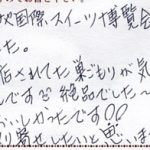 国際スイーツ博覧会
した。
店されてた巣ごもりが気
んです 絶品でした〜
いしかったです!!
り寄せしたいと思いま